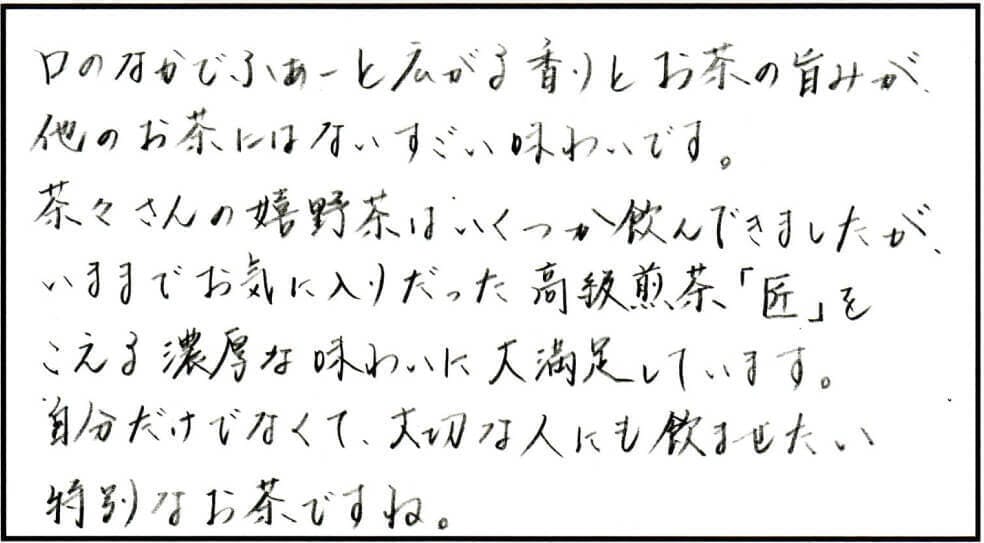 口のなかでふぁーと広がる香りとお茶の旨みが、
他のお茶にはないすごい味わいです。
茶々さんの嬉野茶はいくつか飲んできましたが、
いままでお気に入りだった高級煎茶「匠」を
こえる濃厚な味わいに大満足しています。
自分だけでなくて、大切な人にも飲ませたい
特別なお茶ですね。